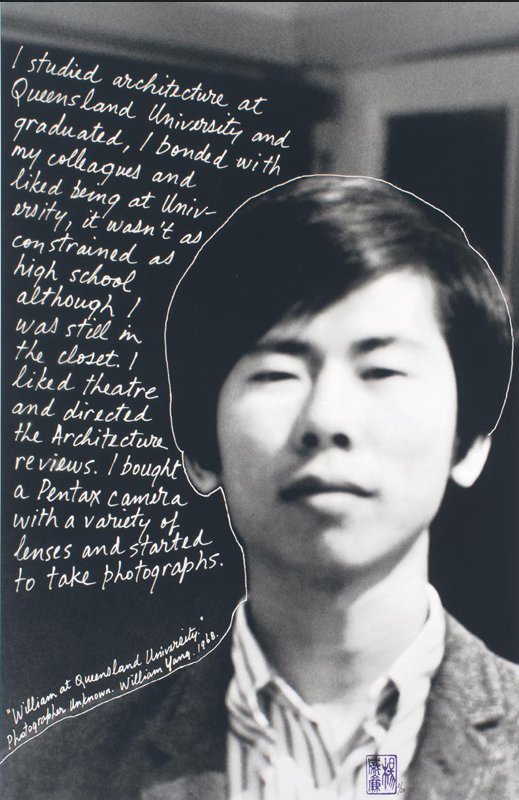 I studied architecture at
Queensland University and
graduated, I bonded with
my colleagues and
liked being at Univ-
ersity, it wasn't as
constrained as
high school
although I
was still in
the closet. I
liked theatre
and directed
the Architecture
reviews. I bought
a Pentax camera
with a variety of
lenses and started
to take photographs.
"William at Queensland University."
Photographer Unknown. William Yang. 1968.